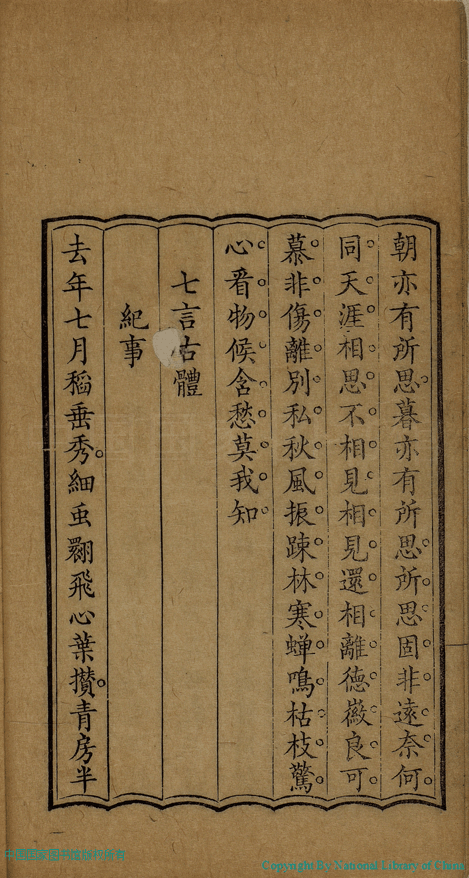 朝亦有所思暮亦有所思所思固非遠奈何
同天涯相思不相見相見還相離德徽良可
慕非傷離別私秋風振疎林寒蟬鳴枯枝驚
心看物候含愁莫我知
七言古體
紀事
去年七月稻垂秀細虫翾飛心葉攅青房半
Copyright By National Library of China